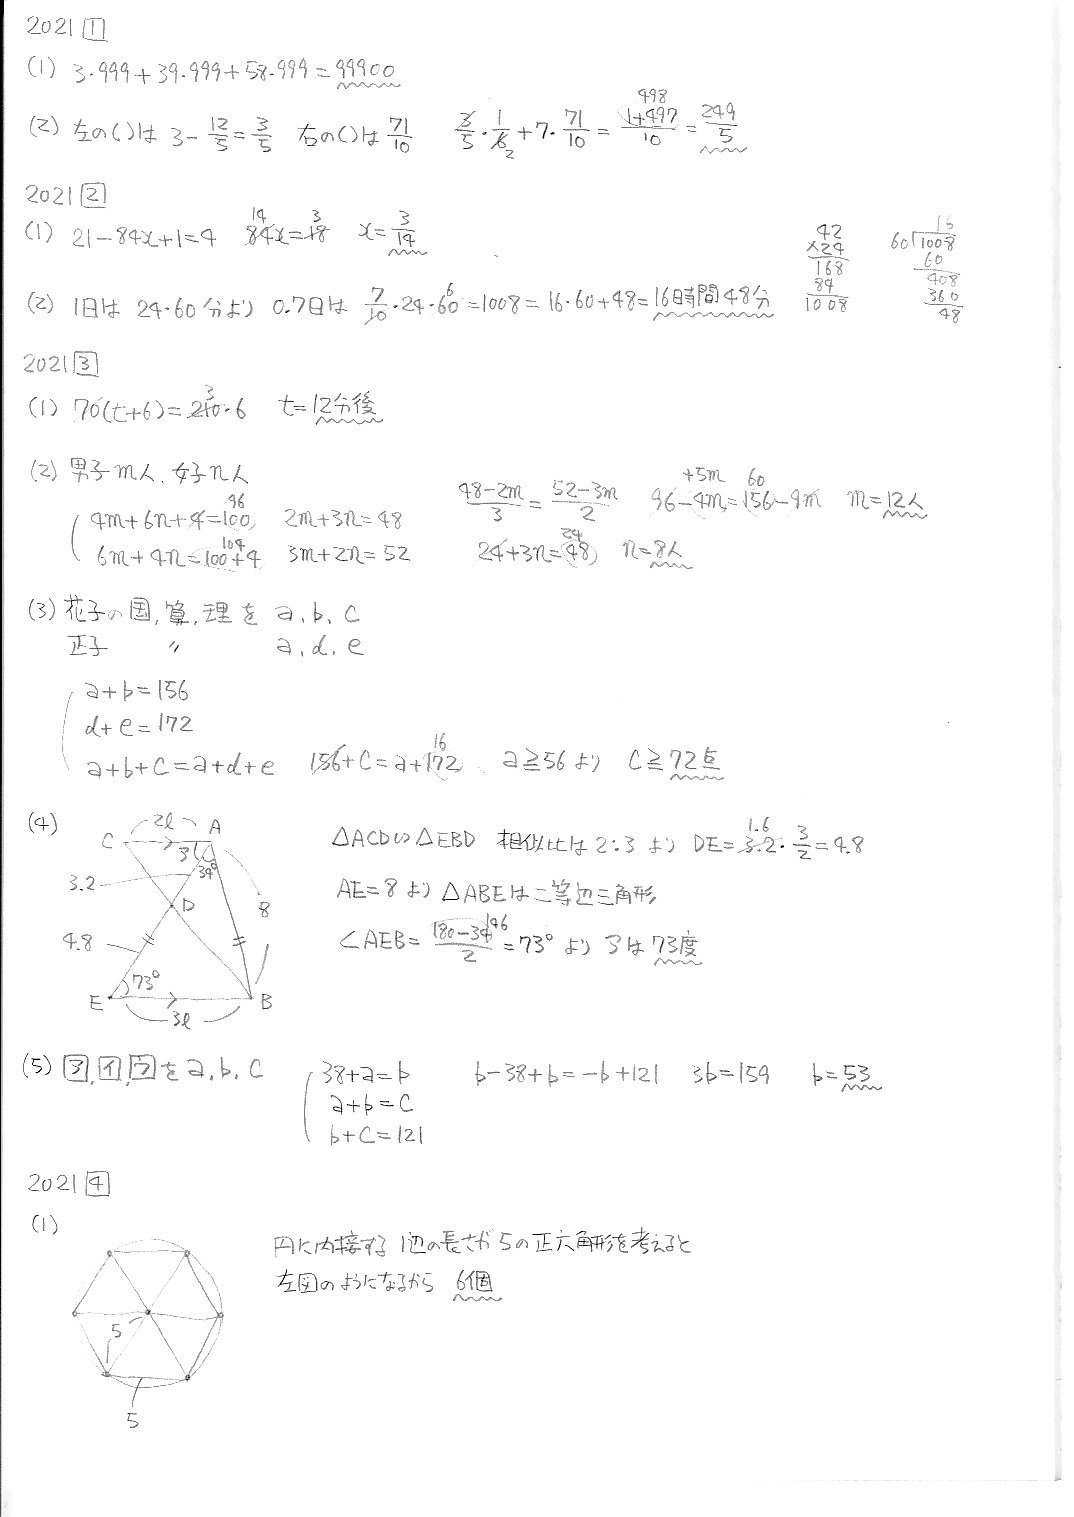 2021 1
(1) 3・999+39・999+58・999=99900
(2) 左の()は 3-12/5=3/5 右の()は 71/10 3/5・1/6 2+7・71/10=1+497/10 498=249/5
2021 2
(1) 21-84x+1=4 84x=18 14 3 x=3/14
(2) 1日は 24・60分より 0.7日は 7/10・24・60 6=1008=16・60+48=16時間48分
42 ×24 168 84 1008
16 60)1008 60 408 360 48
2021 3
(1) 70(t+6)=210・6 3 t=12分後
(2) 男子m人、女子n人
4m+6n+4=100 96 2m+3n=48 48-2m/3=52-3m/2 96-4m=156-9m +5m 60 m=12人
6m+4n=100+4 104 3m+2n=52 24+3n=48 24 n=8人
(3) 花子の国,算,理を a,b,c
正子 〃 a,d,e
a+b=156
d+e=172
a+b+c=a+d+e 156+c=a+172 16 a≧56より c≧72点
(4) 2l C A ア 34° 3.2 D 8 4.8 73° E B 3l
△ACD∽△EBD 相似比は2:3より DE=3.2・3/2 1.6=4.8
AE=8より△ABEは二等辺三角形
∠AEB=180-34/2 146=73°より アは73度
(5) ア,イ,ウを a,b,c 38+a=b b-38+b=-b+121 3b=159 b=53
a+b=c
b+c=121
2021 4
(1) 円に内接する1辺の長さが5の正六角形を考えると
左図のようになるから 6個
5
5